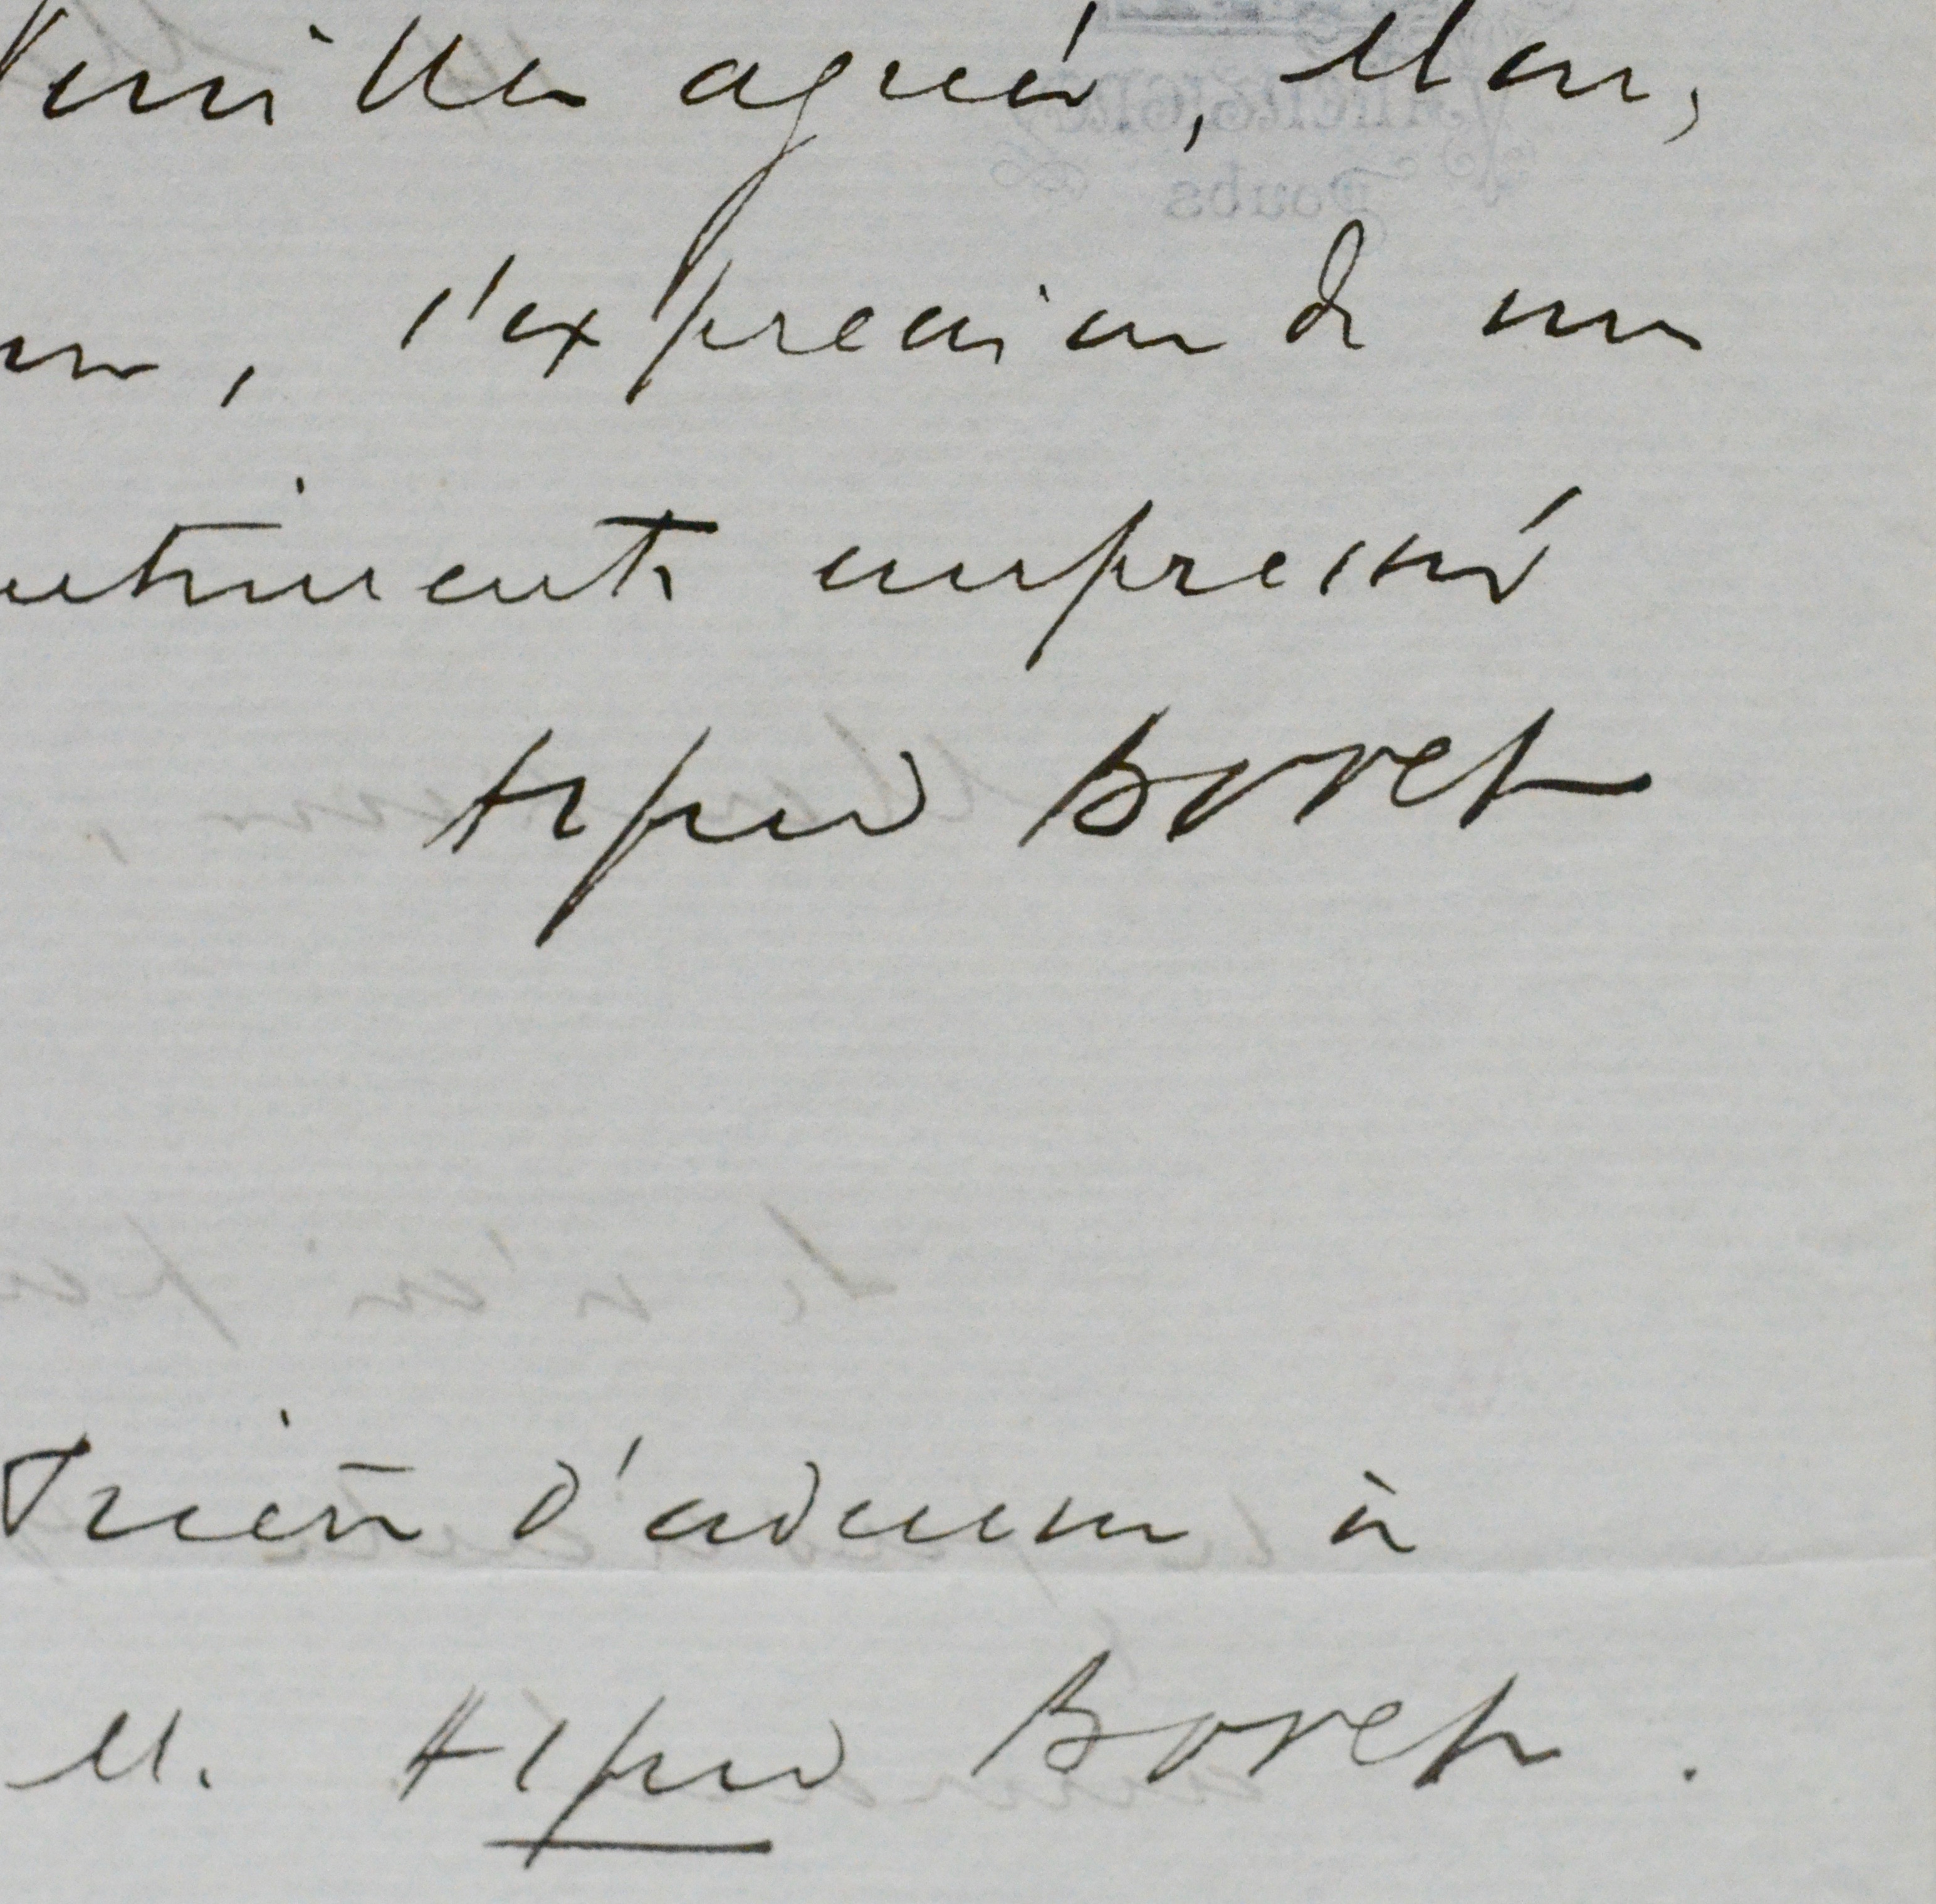 Veuillez agréer, Mon,
l'expression de mes
sentiments empressés
Alfred Bovet
Prière d'adresser à
M. Alfred Bovet.